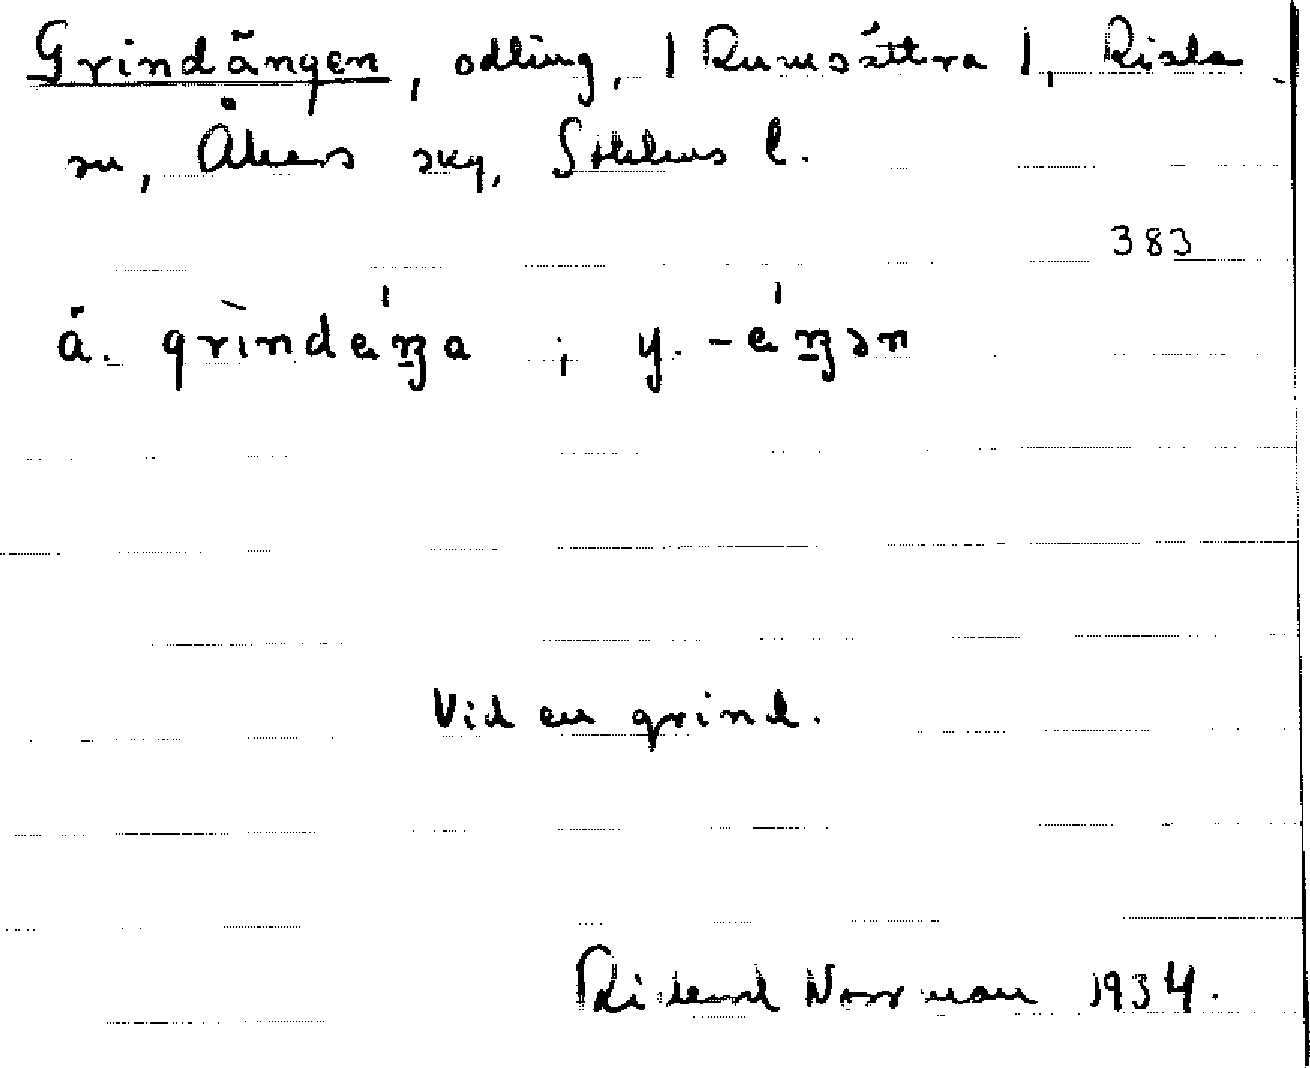 Grindängen, odling, | Rumsättra |, Riala
sn, Åkers skg, Sthlms l.
383
ä. grìnde̍ŋa ; y. -e̍ŋən
Vid en grind.
Rickard Norrman 1934.